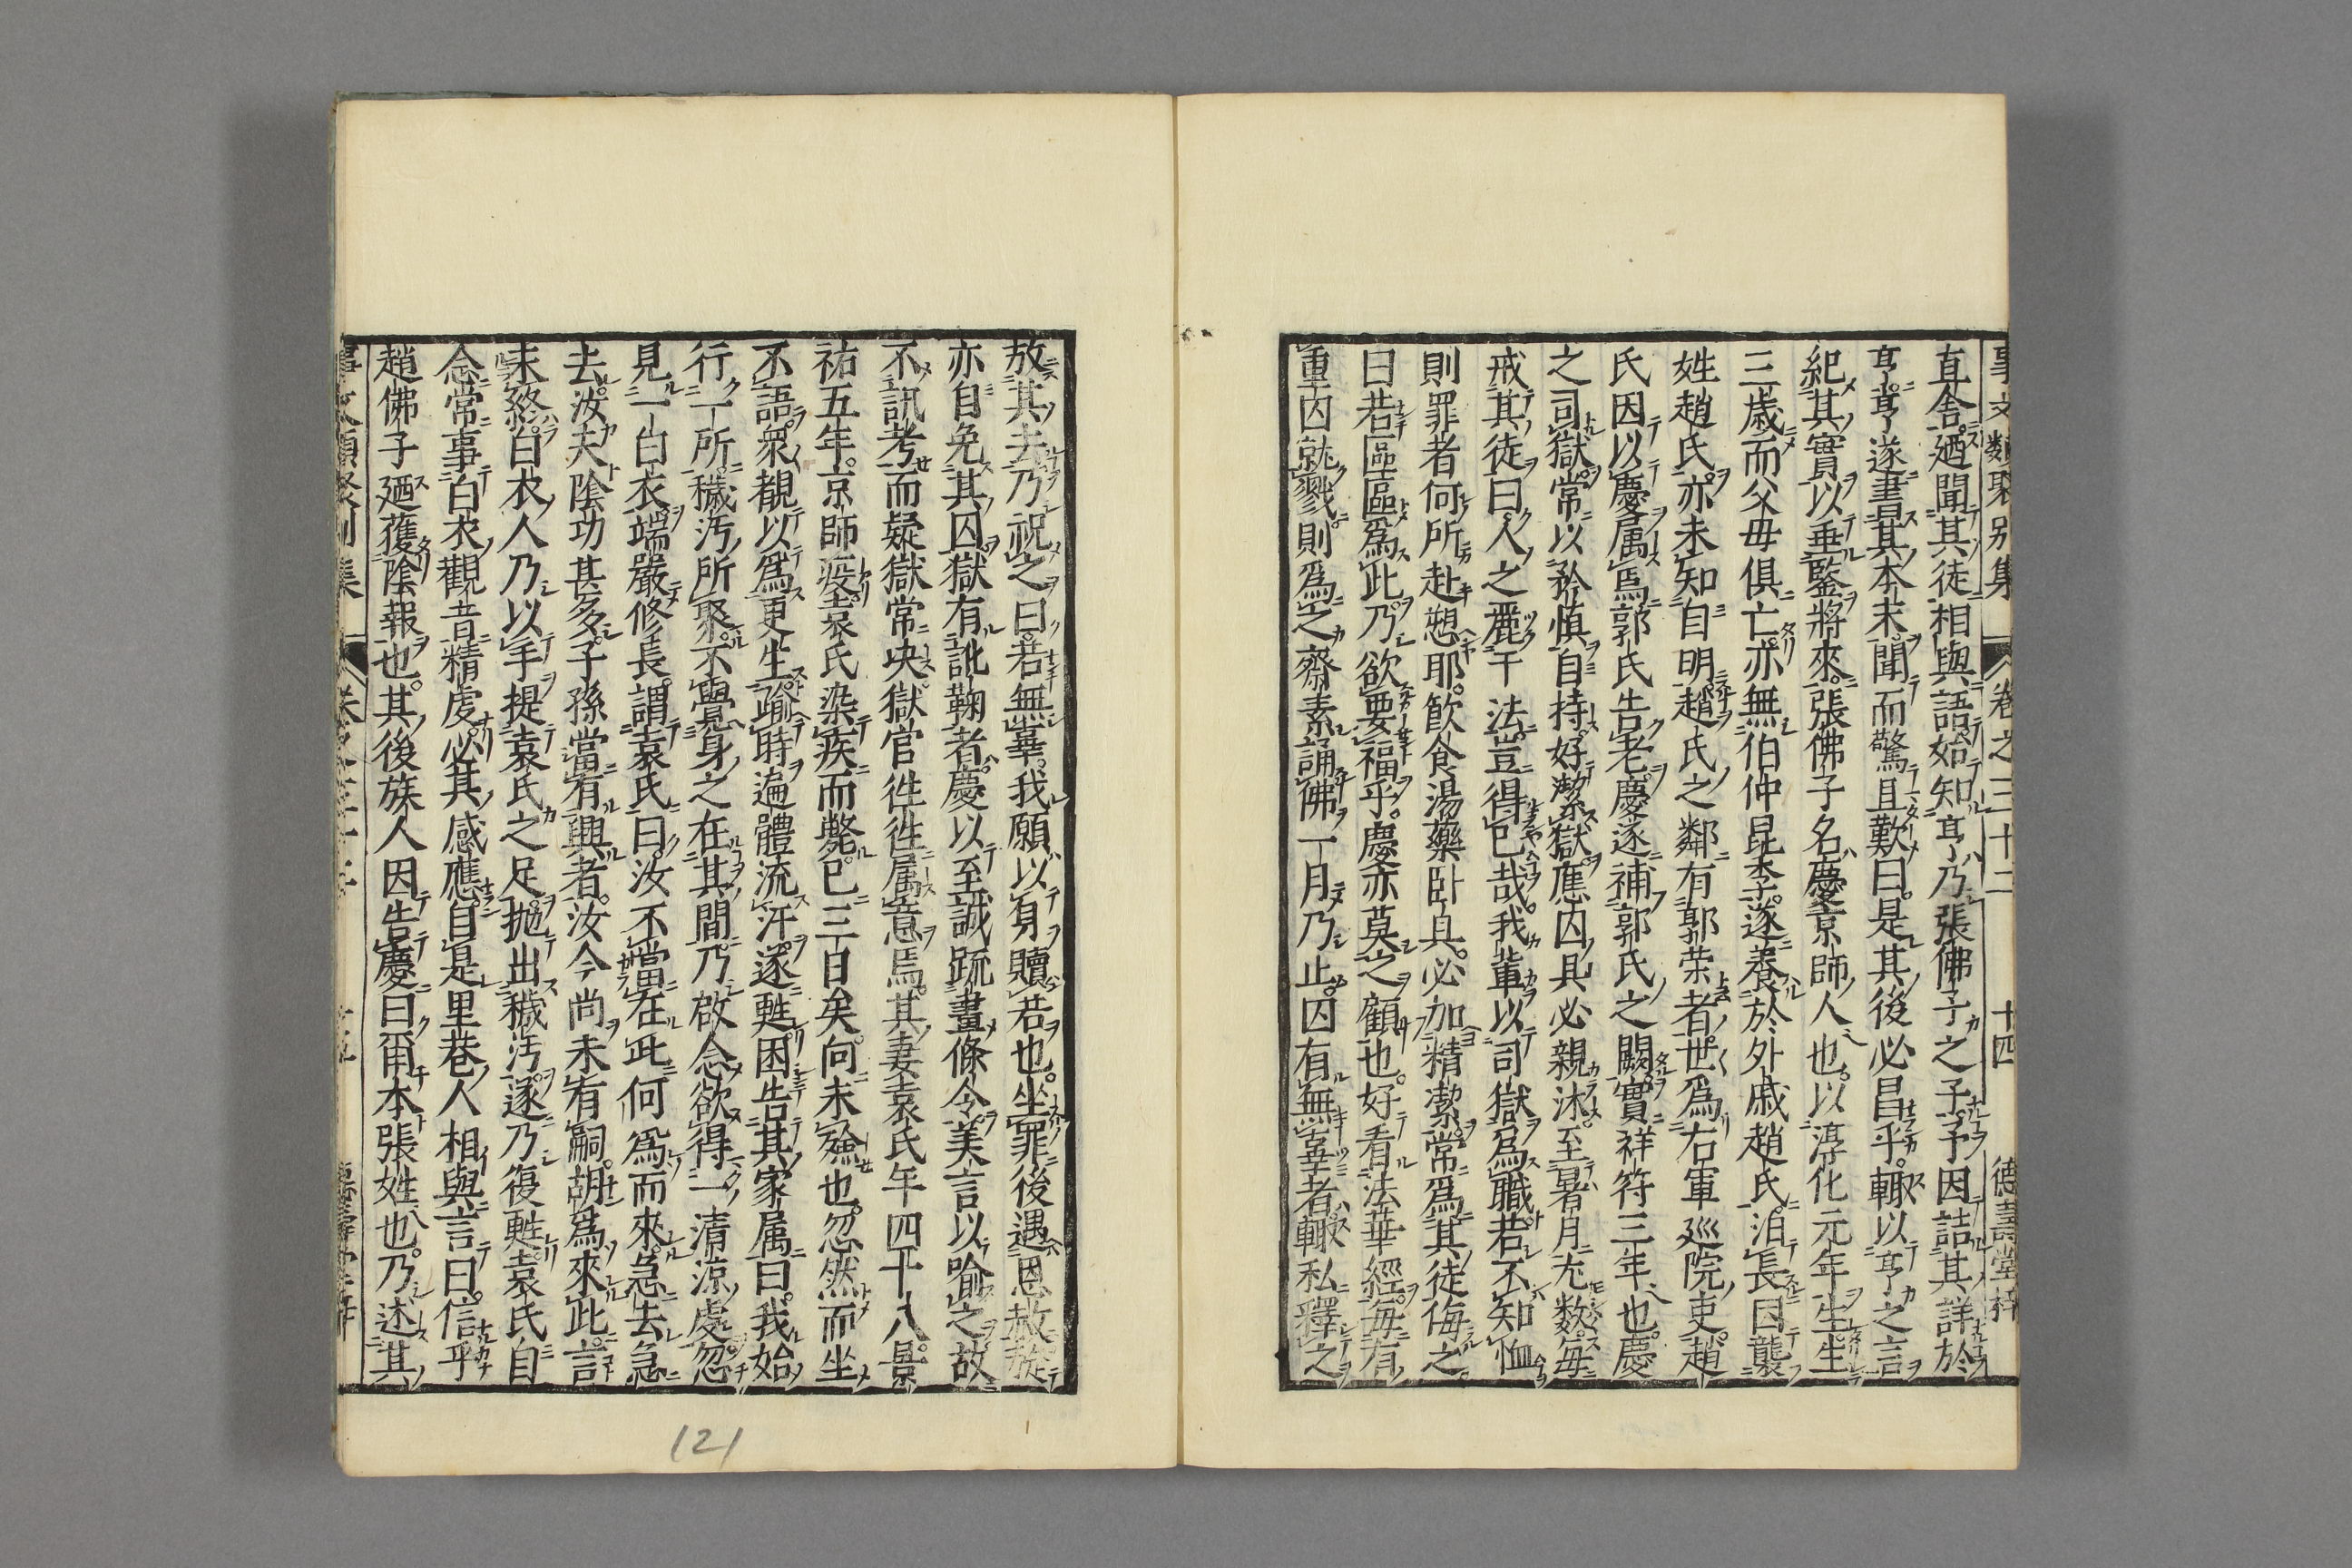 事文類聚别集 卷之三十二 十四 德壽堂梓
直舍廼聞其徒相與語始知亨乃張佛子之子予因詰其詳於
亨亨遂書其本末聞而驚且歎曰是其後必昌乎輙以亨之言
紀其實以垂鍳將來張佛子名慶京師人也以淳化元年生生
三歲而父母俱亡亦無伯仲昆季遂養於外戚趙氏洎長因襲
姓趙氏亦未知自明趙氏之鄰有郭荣者世爲右軍廵院吏趙
氏因以慶属焉郭氏告老慶遂補郭氏之闕實祥符三年也慶
之司獄常以矜慎自持好潔獄應囚具必親沐至暑月尤数每
戒其徒曰人之麗于法豈得已哉我輩以司獄爲職若不知恤
則罪者何所赴愬耶飮食湯藥卧具必加精潔常爲其徒侮之
曰若區區爲此乃欲要福乎慶亦莫之顧也好看法華經每有
重囚就戮則爲之齋素誦佛一月乃止囚有無辜者輙私釋之
放其去乃祝之曰若無辜我願以身贖若也坐罪後遇恩赦旋
亦自免其囚獄有訛鞠者慶以至誠䟽畫條令美言以喻之故
不訊考而疑獄常决獄官徃徃属意焉其妻袁氏年四十八景
祐五年京師疫袁氏染疾而斃已三日矣向未殮也忽然而坐
不語衆覩以爲更生踰時遍體流汗遂甦困告其家属曰我始
行一所穢汚所聚不覺身之在其間乃啟念欲得一清凉處忽
見一白衣端嚴修長謂袁氏曰汝不當在此何爲而來急去急
去汝夫隂功甚多子孫當有興者汝今尚未有嗣胡爲來此言
未終白衣人乃以手提袁氏之足抛出穢汚遂乃復甦袁氏自
念常事白衣觀音精虔必其感應自是里巷人相與言曰信乎
趙佛子廼獲隂報也其後族人因告慶曰甭本張姓也乃述其